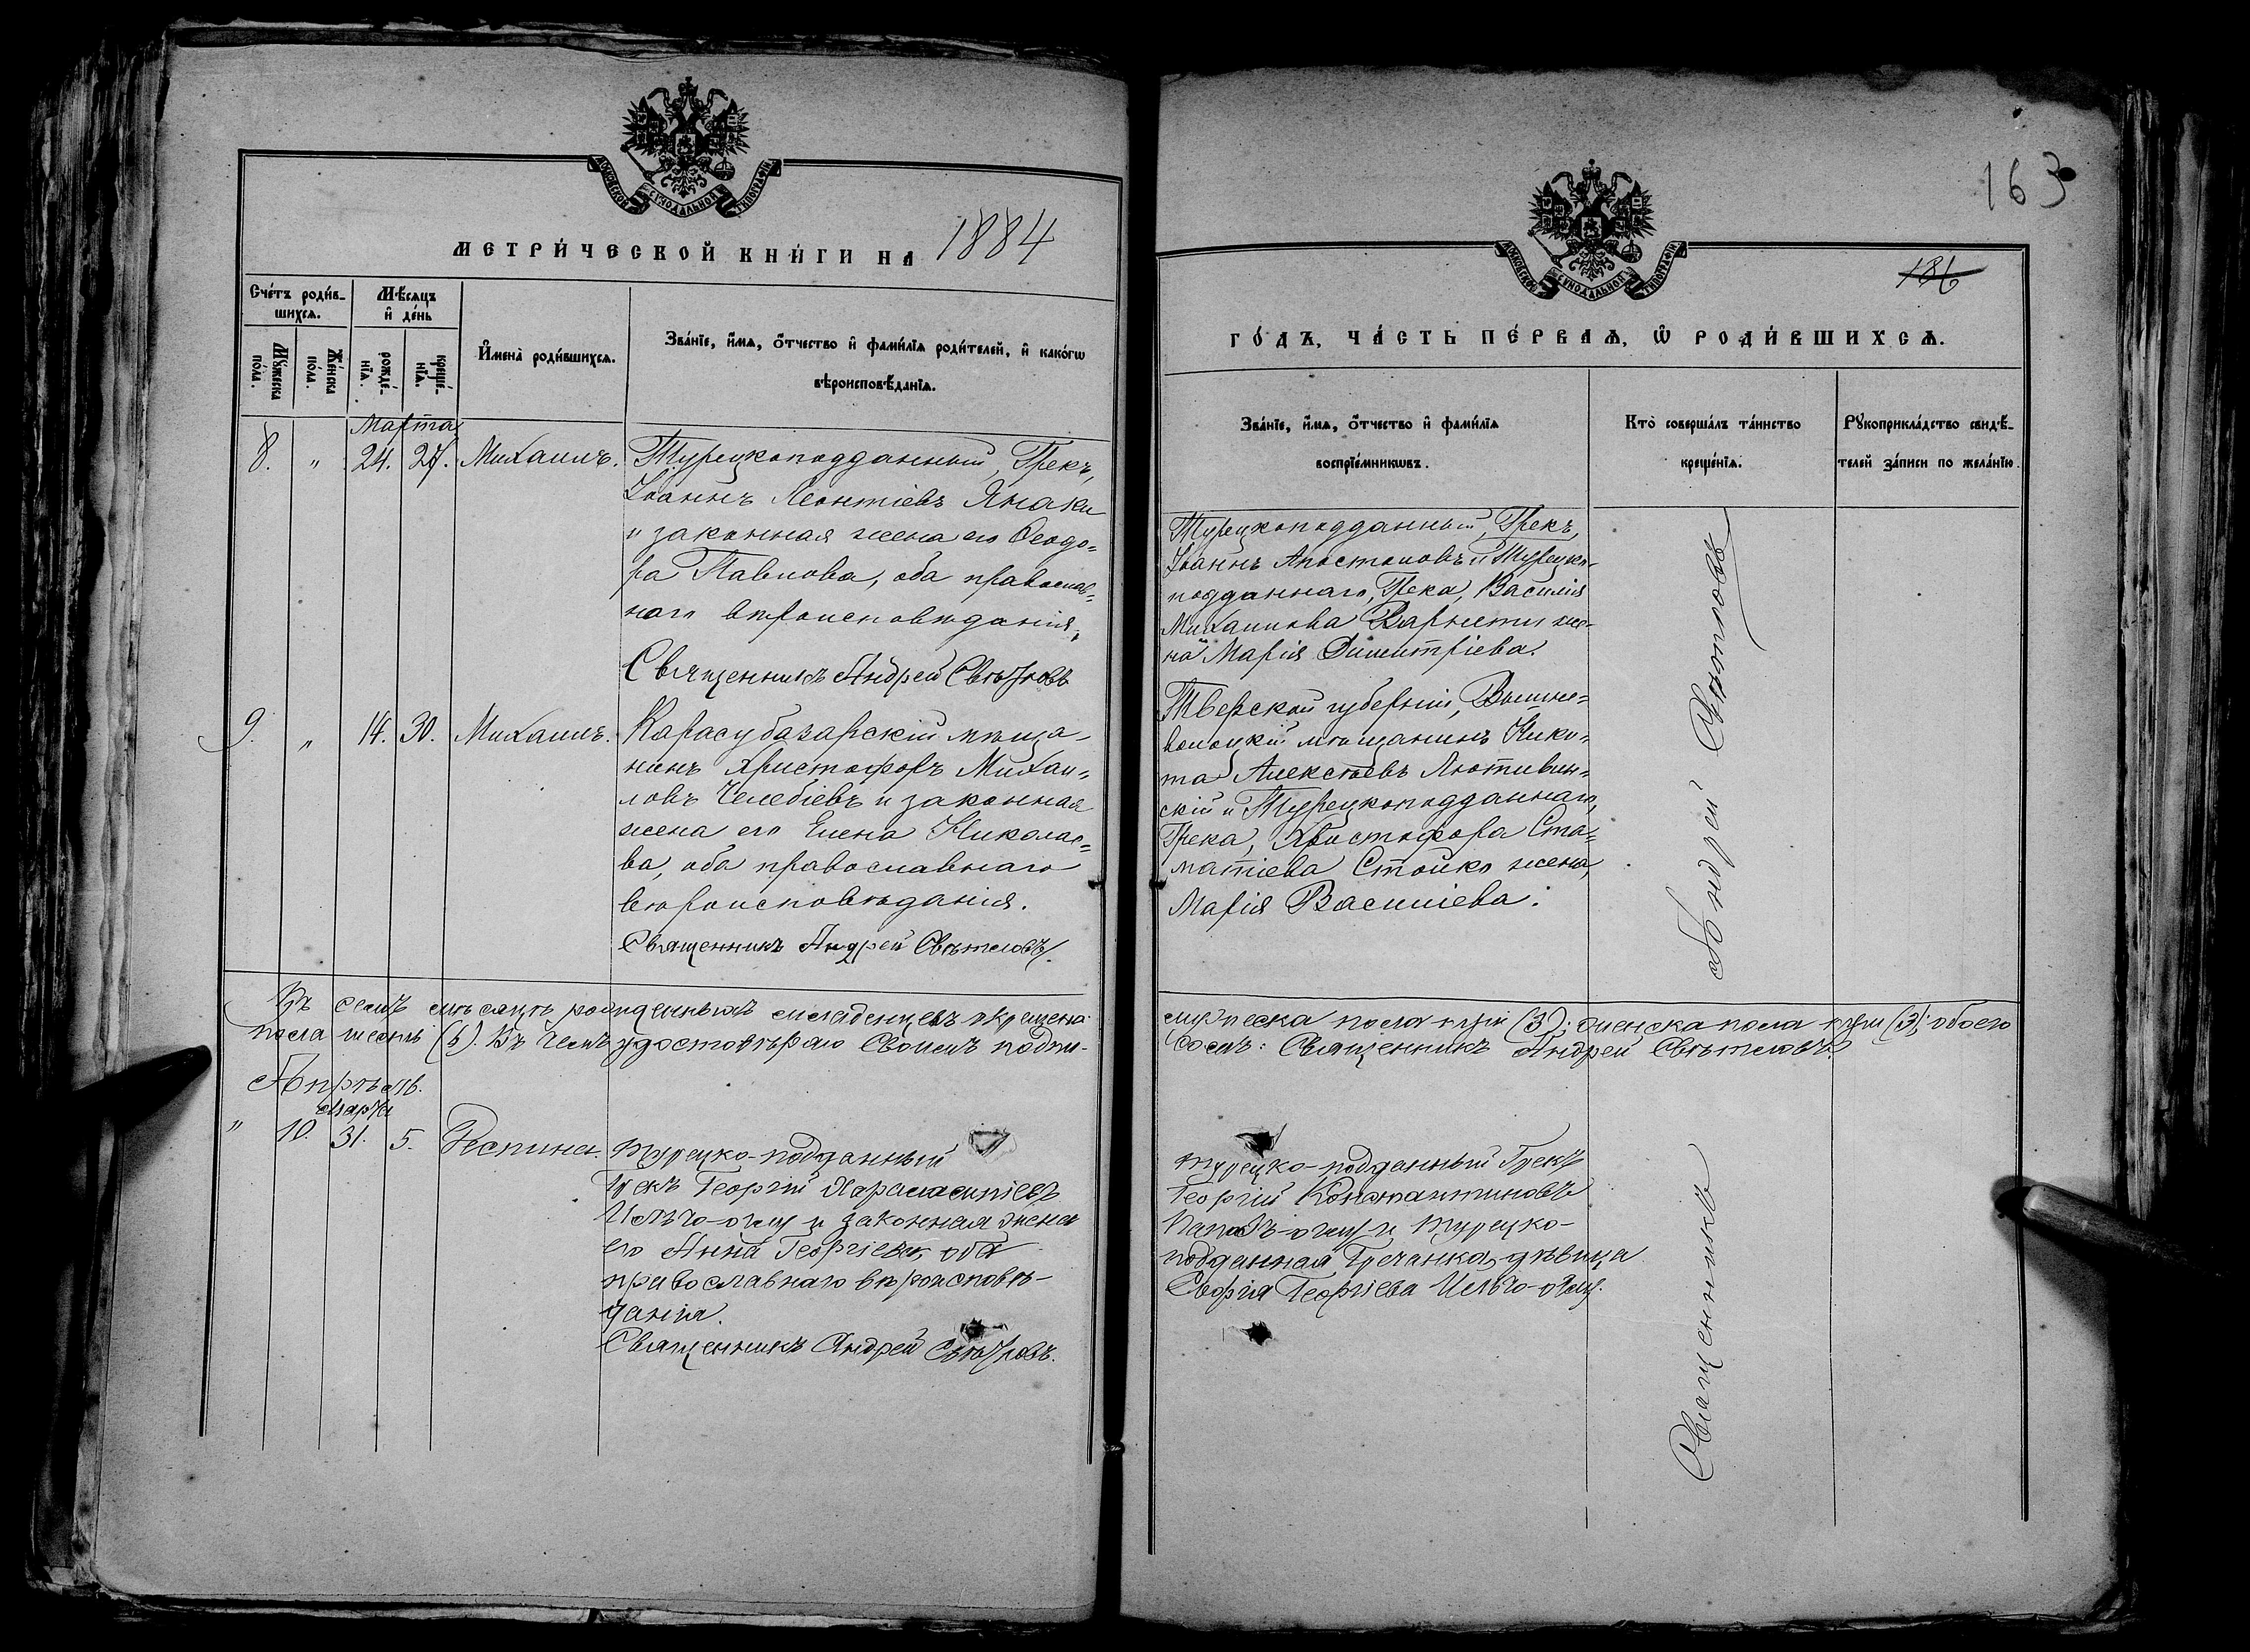 МОСКОВСКОЙ СѴНОДАЛЬНОЙ ТИПОГРАФІИ
МЕТРИ́ЧЕСКОЙ КНИ́ГИ НА 1884
Сче́тъ роди́в-
шихсѧ.
Мꙋ́жеска
по́ла.
Же́нска
по́ла.
Мѣ́сѧцъ
и҆ де́нь
рожде́-
нїѧ.
креще́-
нїѧ.
И҆мена̀ роди́вшихсѧ.
Зва́нїе, и҆́мѧ, ѻ҆́тчество и҆ фами́лїѧ роди́телей, и҆ како́гѡ
вѣроисповѣ́данїѧ.
Марта
8. " 24. 27. Михаилъ.
Турецкоподданный, Грекъ,
Іоаннъ Леонтіевъ Янаки
и законная жена его Ѳеодо=
ра Павлова, оба православ=
наго вѣроисповѣданія.
Священникъ Андрей Свѣтловъ
9. " 14. 30. Михаилъ.
Карасубазарскій мѣща-
нинъ Христофоръ Михаи=
ловъ Челебіевъ и законная
жена его Елена Николае=
ва, оба православнаго
вѣроисповѣданія.
Священникъ Андрей Свѣтловъ.
Въ семъ мѣсяцѣ рожденныхъ младенцевъ и крещено:
пола шесть (6). Въ чемъ удостовѣряю своимъ подпи-
Апрѣль.
Марта
" 10. 31. 5. Деспина.
Турецко-подданный
Грекъ Георгій Харалампіевъ
и законная жена
его Анна Георгіева, оба
православнаго вѣроисповѣ-
данія.
Священникъ Андрей Свѣтловъ.
163
МОСКОВСКОЙ СѴНОДАЛЬНОЙ ТИПОГРАФІИ
186
ГО́ДЪ, ЧА́СТЬ ПЕ́РВАѦ, Ѡ҆ РОДИ́ВШИХСѦ.
Зва́нїе, и҆́мѧ, ѻ҆́тчество и҆ фами́лїѧ
воспрїе́мникѡвъ.
Кто̀ соверша́лъ та́инство
креще́нїѧ.
Рꙋкоприкла́дство свидѣ́-
телей за́писи по жела́нїю.
Турецкоподданный, Грекъ,
Іоаннъ Апостоловъ и Турецко-
подданнаго, Грека, Василія
Михаилова же-
на Марія Димитріева.
Тверской губерніи, Вышне=
волоцкій мѣщанинъ Ники=
та Алексѣевъ Лютивин=
скій и Турецкоподданнаго,
Грека, Христофора Ста=
матіева Стойко жена,
Марія Василіева.
Андрей Свѣтловъ
мужеска пола три (3); женска пола три (3); обоего
сомъ: Священникъ Андрей Свѣтловъ.
Турецко-подданный Грекъ
Георгій Константиновъ
и турецко-
подданная Гречанка, дѣвица
Софія Георгіева
Священникъ